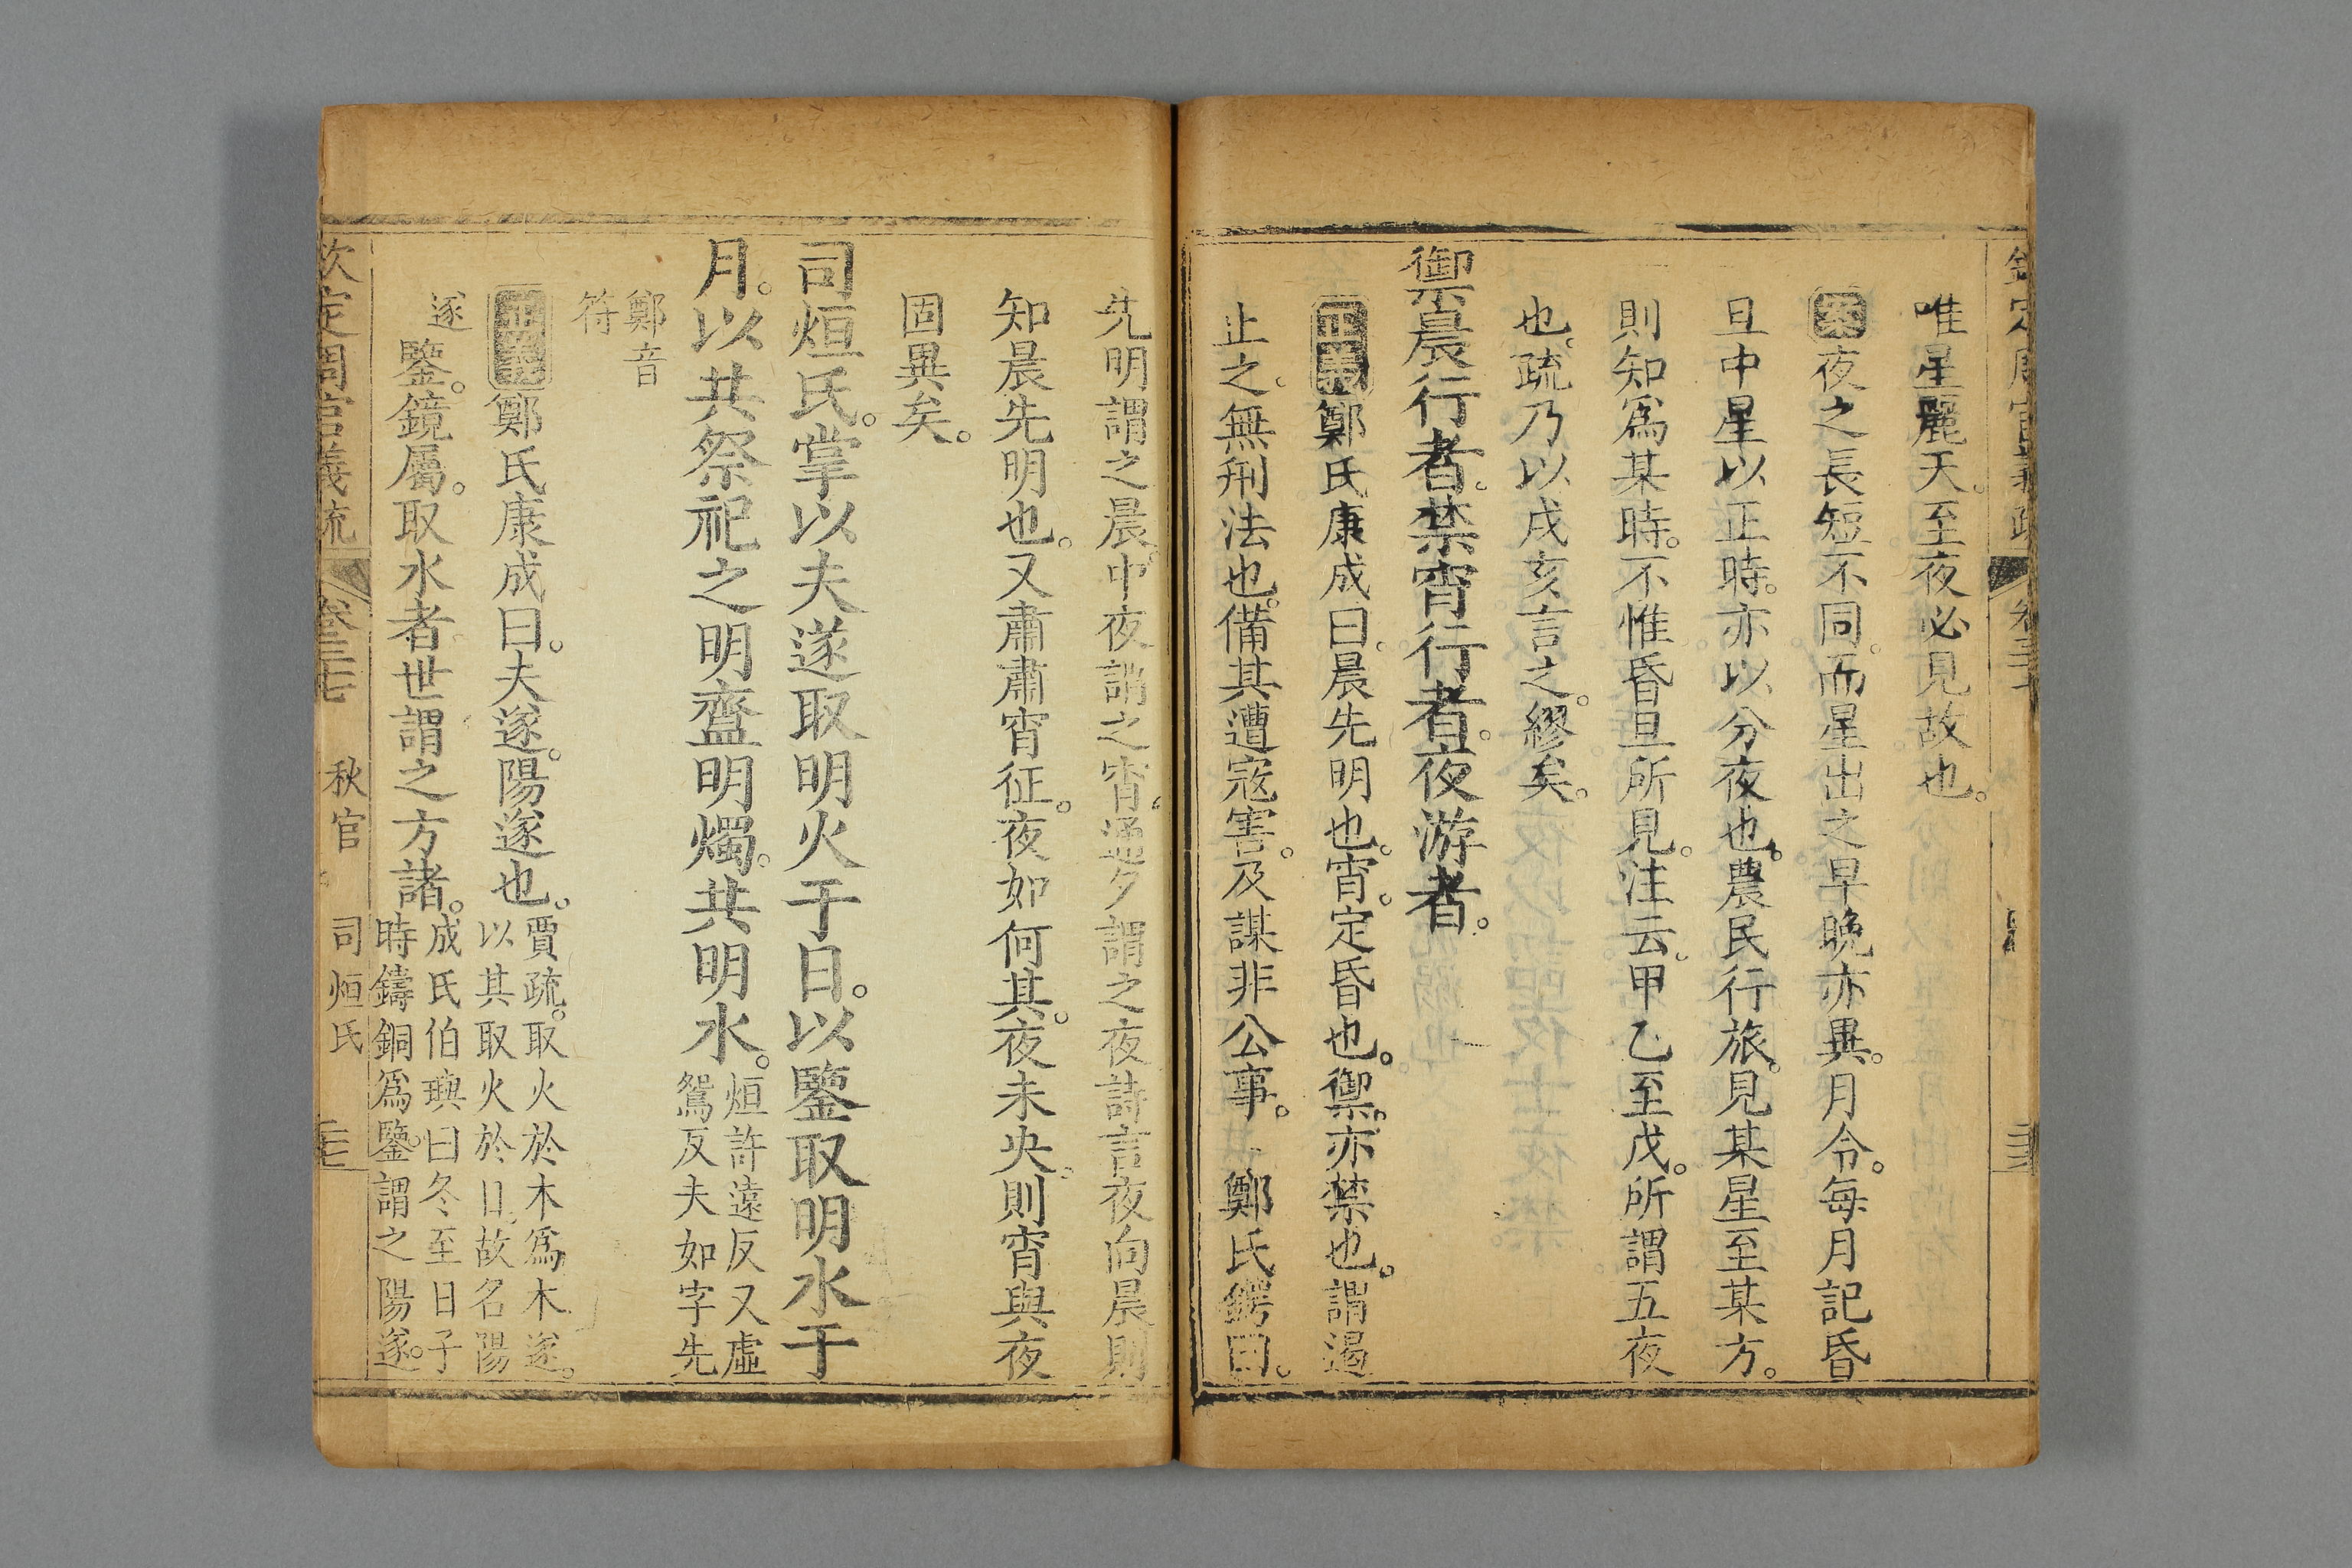 唯星麗天。至夜必見故也。
案夜之長短不同。而星出之早晚亦異。月令。每月記昏
旦中星以正時。亦以分夜也。農民行旅。見某星至某方。
則知爲某時。不惟昏旦所見。注云。甲乙至戊。所謂五夜
也。疏乃以戌亥言之。繆矣。
禦晨行者。禁宵行者。夜游者。
正義鄭氏康成曰。晨先明也。宵。定昏也。禦。亦禁也。謂遏
止之。無刑法也。備其遭寇害。及謀非公事。 鄭氏鍔曰。
先明謂之晨。中夜謂之宵。通夕謂之夜。詩言夜向晨。則
知晨先明也。又肅肅宵征。夜如何其。夜未央。則宵與夜
固異矣。
司烜氏。掌以夫遂取明火于日。以鑒取明水于
月。以共祭祀之明齍明燭。共明水。烜許遠反又虛
鴛反夫如字先
鄭音
符
正義鄭氏康成曰。夫遂。陽遂也。賈疏。取火於木爲木遂。
以其取火於日。故名陽
遂
鑒。鏡屬。取水者世謂之方諸。成氏伯璵曰冬至日子
時鑄銅爲鑒。謂之陽遂。
欽定周官義疏 卷三十七 秋官 司烜氏